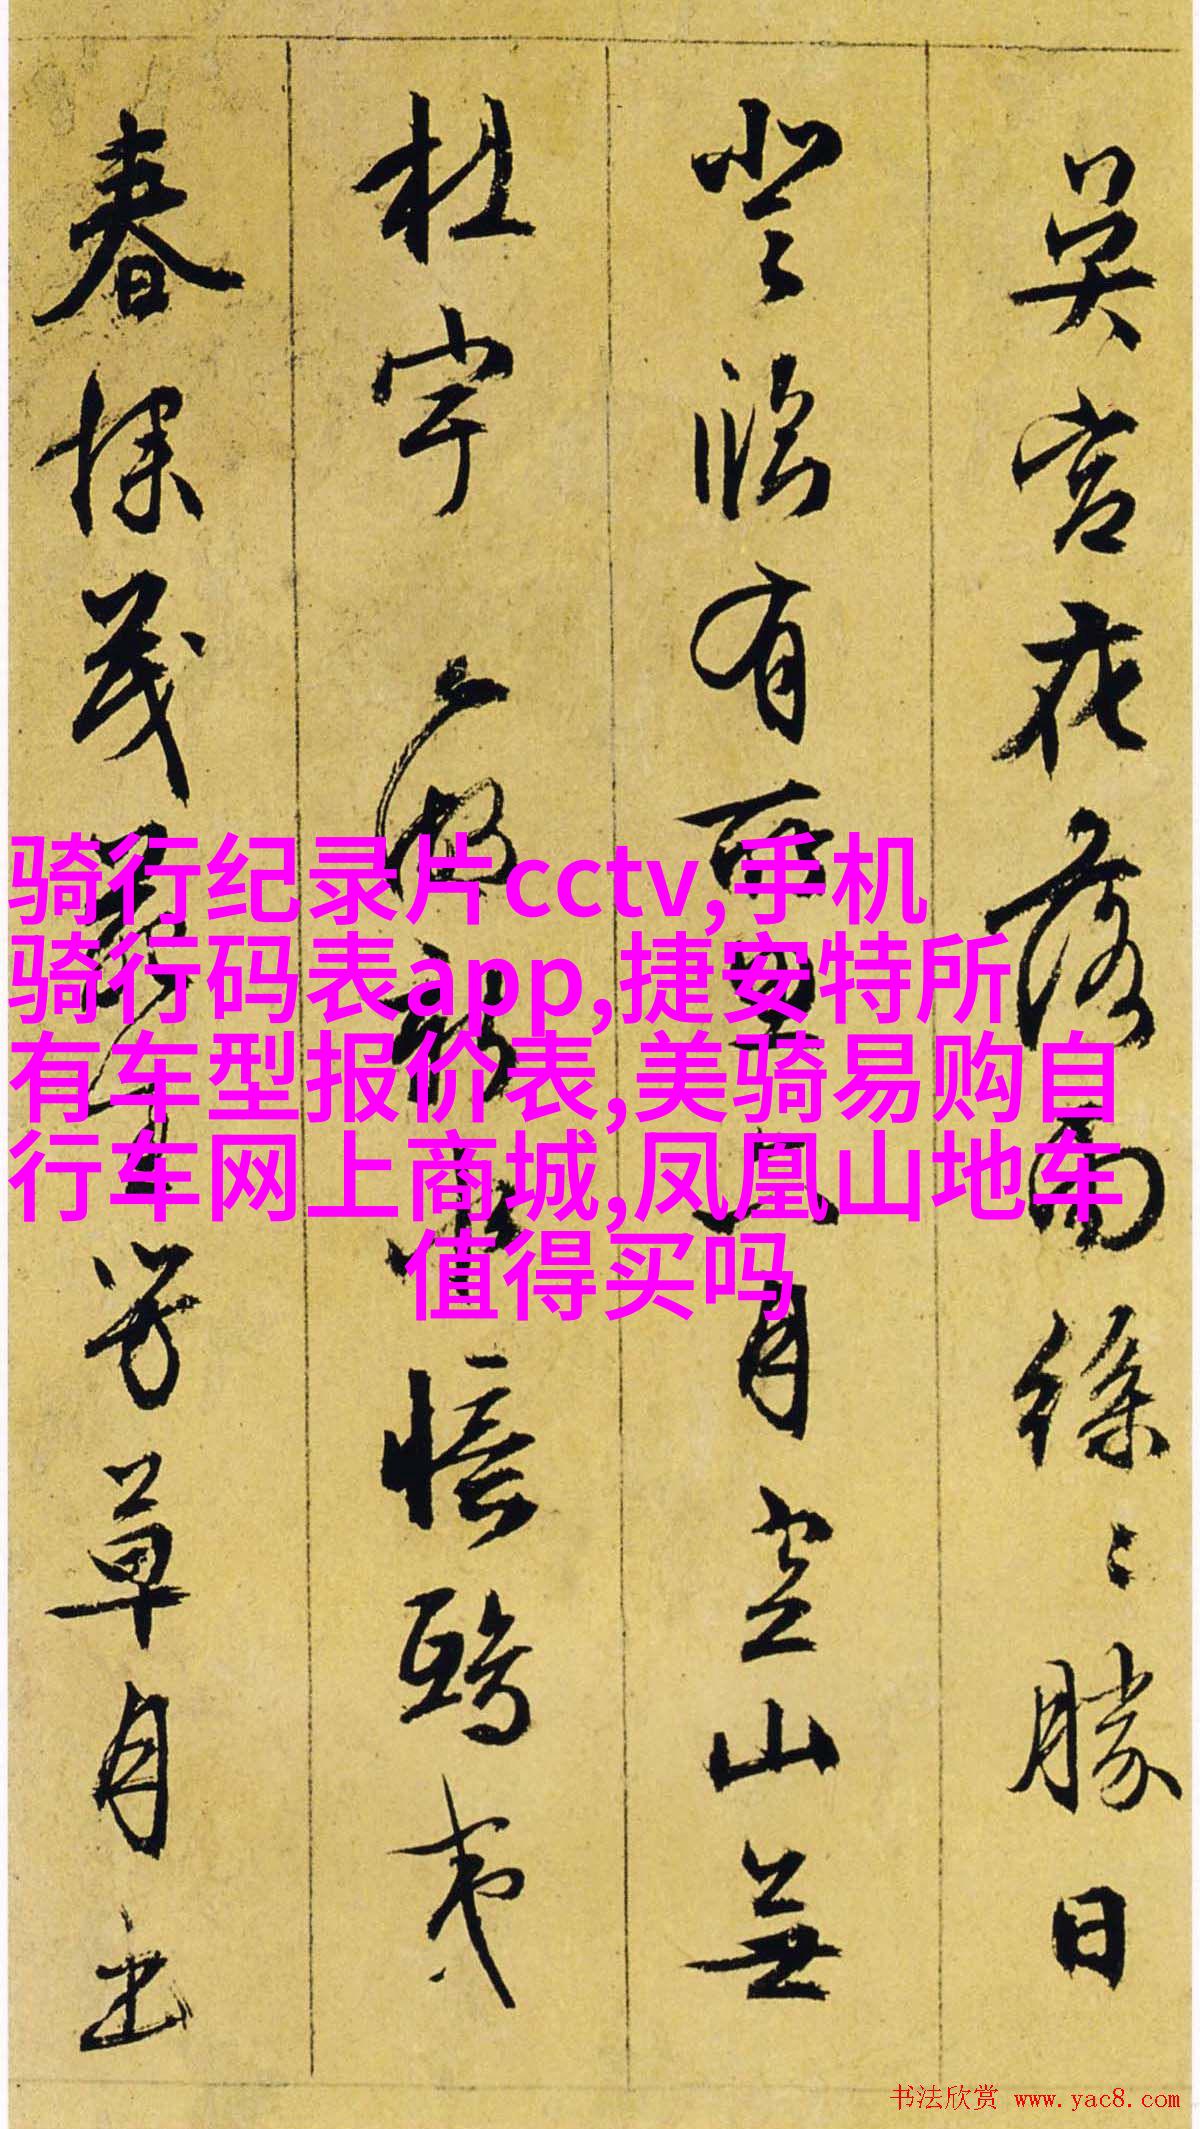 吴宫花落雨絲〻勝日
登臨有月空山無
杜宇憶鸱夷
春深茂芳草月出
骑行纪录片cctv,手机
骑行码表app,捷安特所
有车型报价表,美骑易购自
行车网上商城,凤凰山地车
值得买吗
书法欣赏 www.yac8.com